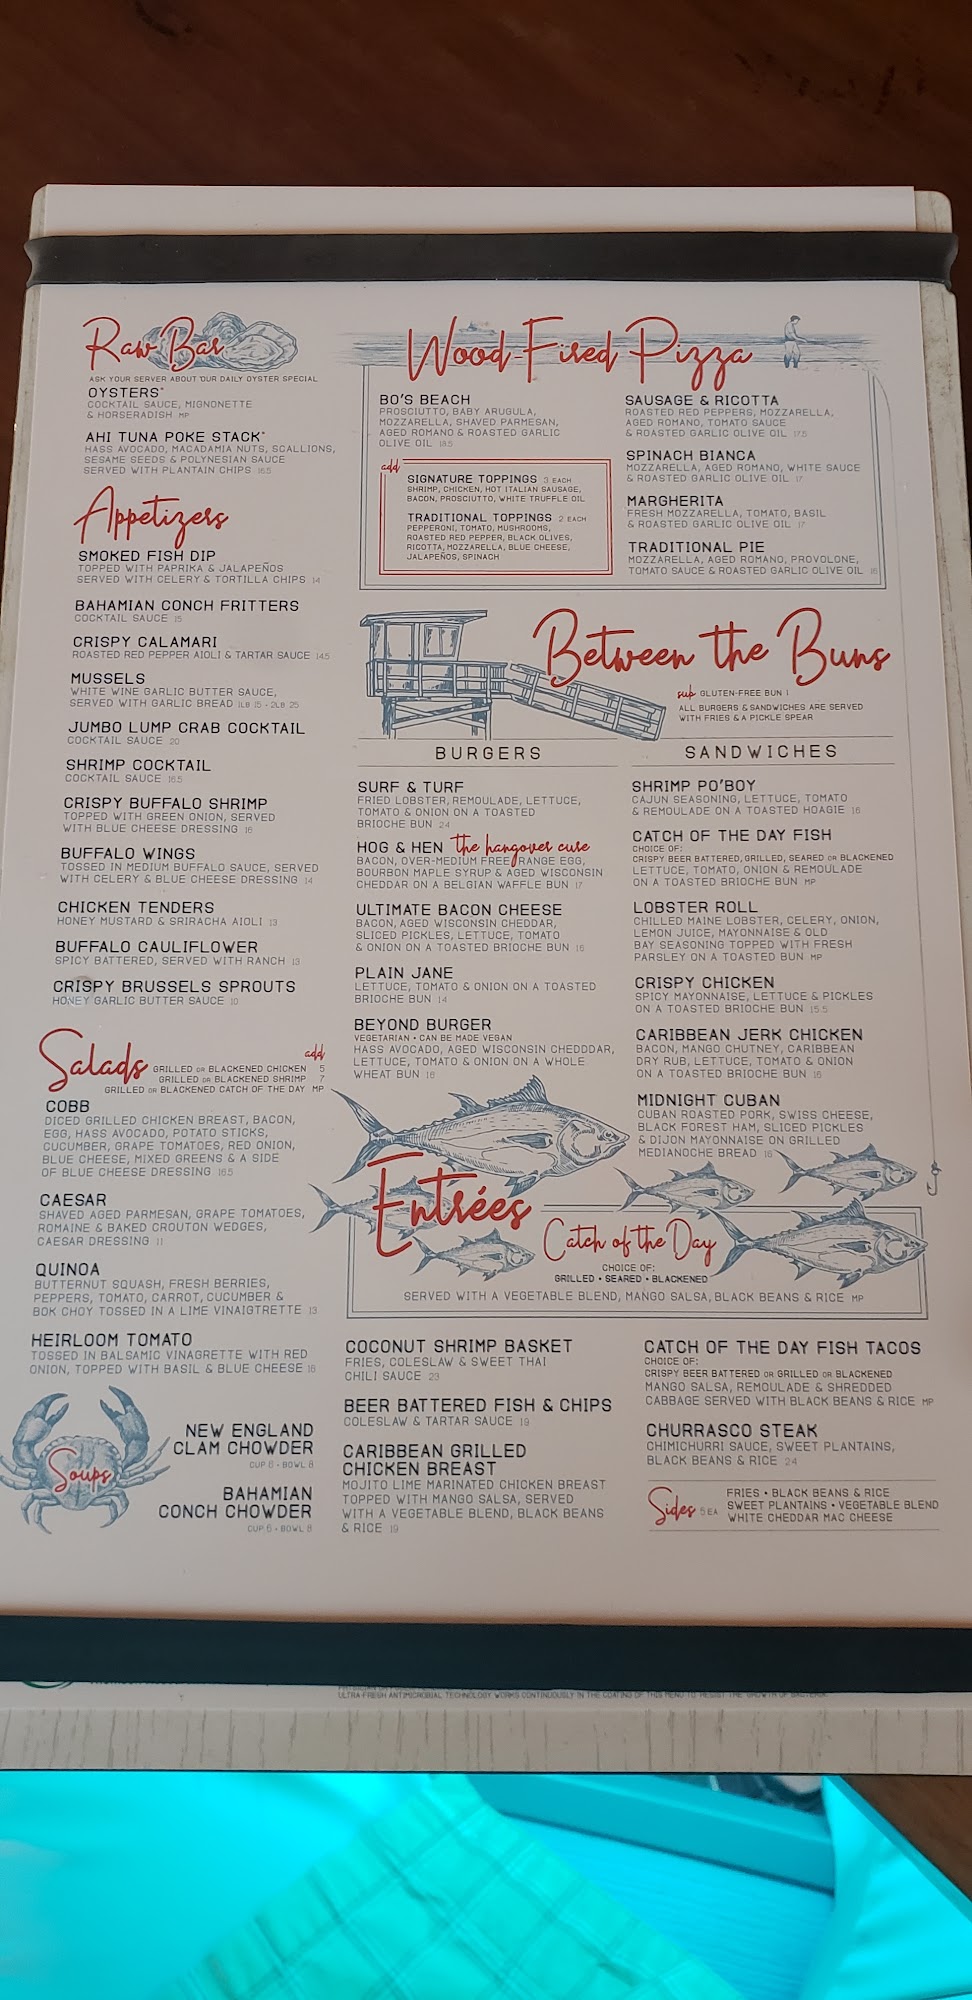 Raw Bar
ASK YOUR SERVER ABOUT OUR DAILY OYSTER SPECIAL
OYSTERS*
COCKTAIL SAUCE, MIGNONETTE
& HORSERADISH MP
AHI TUNA POKE STACK*
HASS AVOCADO, MACADAMIA NUTS, SCALLIONS,
SESAME SEEDS & POLYNESIAN SAUCE
SERVED WITH PLANTAIN CHIPS 16.5
Appetizers
SMOKED FISH DIP
TOPPED WITH PAPRIKA & JALAPEÑOS
SERVED WITH CELERY & TORTILLA CHIPS 14
BAHAMIAN CONCH FRITTERS
COCKTAIL SAUCE 15
CRISPY CALAMARI
ROASTED RED PEPPER AIOLI & TARTAR SAUCE 14.5
MUSSELS
WHITE WINE GARLIC BUTTER SAUCE,
SERVED WITH GARLIC BREAD 1LB 15 • 2LB 25
JUMBO LUMP CRAB COCKTAIL
COCKTAIL SAUCE 20
SHRIMP COCKTAIL
COCKTAIL SAUCE 16.5
CRISPY BUFFALO SHRIMP
TOPPED WITH GREEN ONION, SERVED
WITH BLUE CHEESE DRESSING 16
BUFFALO WINGS
TOSSED IN MEDIUM BUFFALO SAUCE, SERVED
WITH CELERY & BLUE CHEESE DRESSING 14
CHICKEN TENDERS
HONEY MUSTARD & SRIRACHA AIOLI 13
BUFFALO CAULIFLOWER
SPICY BATTERED, SERVED WITH RANCH 13
CRISPY BRUSSELS SPROUTS
HONEY GARLIC BUTTER SAUCE 10
Salads
add
GRILLED OR BLACKENED CHICKEN 5
GRILLED OR BLACKENED SHRIMP 7
GRILLED OR BLACKENED CATCH OF THE DAY MP
COBB
DICED GRILLED CHICKEN BREAST, BACON,
EGG, HASS AVOCADO, POTATO STICKS,
CUCUMBER, GRAPE TOMATOES, RED ONION,
BLUE CHEESE, MIXED GREENS & A SIDE
OF BLUE CHEESE DRESSING 16.5
CAESAR
SHAVED AGED PARMESAN, GRAPE TOMATOES,
ROMAINE & BAKED CROUTON WEDGES,
CAESAR DRESSING 11
QUINOA
BUTTERNUT SQUASH, FRESH BERRIES,
PEPPERS, TOMATO, CARROT, CUCUMBER &
BOK CHOY TOSSED IN A LIME VINAIGTRETTE 13
HEIRLOOM TOMATO
TOSSED IN BALSAMIC VINAGRETTE WITH RED
ONION, TOPPED WITH BASIL & BLUE CHEESE 16
Soups
NEW ENGLAND
CLAM CHOWDER
CUP 6 • BOWL 8
BAHAMIAN
CONCH CHOWDER
CUP 6 • BOWL 8
Wood Fired Pizza
BO'S BEACH
PROSCIUTTO, BABY ARUGULA,
MOZZARELLA, SHAVED PARMESAN,
AGED ROMANO & ROASTED GARLIC
OLIVE OIL
add
SIGNATURE TOPPINGS 3 EACH
SHRIMP, CHICKEN, HOT ITALIAN SAUSAGE,
BACON, PROSCIUTTO, WHITE TRUFFLE OIL
TRADITIONAL TOPPINGS 2 EACH
PEPPERONI, TOMATO, MUSHROOMS,
ROASTED RED PEPPER, BLACK OLIVES,
RICOTTA, MOZZARELLA, BLUE CHEESE,
JALAPEÑOS, SPINACH
SAUSAGE & RICOTTA
ROASTED RED PEPPERS, MOZZARELLA,
AGED ROMANO, TOMATO SAUCE
& ROASTED GARLIC OLIVE OIL 17.5
SPINACH BIANCA
MOZZARELLA, AGED ROMANO, WHITE SAUCE
& ROASTED GARLIC OLIVE OIL 17
MARGHERITA
FRESH MOZZARELLA, TOMATO, BASIL
& ROASTED GARLIC OLIVE OIL 17
TRADITIONAL PIE
MOZZARELLA, AGED ROMANO, PROVOLONE,
TOMATO SAUCE & ROASTED GARLIC OLIVE OIL 16
Between the Buns
sub GLUTEN-FREE BUN 1
ALL BURGERS & SANDWICHES ARE SERVED
WITH FRIES & A PICKLE SPEAR
BURGERS
SURF & TURF
FRIED LOBSTER, REMOULADE, LETTUCE,
TOMATO & ONION ON A TOASTED
BRIOCHE BUN 24
HOG & HEN the hangover cure
BACON, OVER-MEDIUM FREE RANGE EGG,
BOURBON MAPLE SYRUP & AGED WISCONSIN
CHEDDAR ON A BELGIAN WAFFLE BUN 17
ULTIMATE BACON CHEESE
BACON, AGED WISCONSIN CHEDDAR,
SLICED PICKLES, LETTUCE, TOMATO
& ONION ON A TOASTED BRIOCHE BUN 16
PLAIN JANE
LETTUCE, TOMATO & ONION ON A TOASTED
BRIOCHE BUN 14
BEYOND BURGER
VEGETARIAN • CAN BE MADE VEGAN
HASS AVOCADO, AGED WISCONSIN CHEDDDAR,
LETTUCE, TOMATO & ONION ON A WHOLE
WHEAT BUN 16
SANDWICHES
SHRIMP PO'BOY
CAJUN SEASONING, LETTUCE, TOMATO
& REMOULADE ON A TOASTED HOAGIE 16
CATCH OF THE DAY FISH
CHOICE OF:
CRISPY BEER BATTERED, GRILLED, SEARED OR BLACKENED
LETTUCE, TOMATO, ONION & REMOULADE
ON A TOASTED BRIOCHE BUN MP
LOBSTER ROLL
CHILLED MAINE LOBSTER, CELERY, ONION,
LEMON JUICE, MAYONNAISE & OLD
BAY SEASONING TOPPED WITH FRESH
PARSLEY ON A TOASTED BUN MP
CRISPY CHICKEN
SPICY MAYONNAISE, LETTUCE & PICKLES
ON A TOASTED BRIOCHE BUN 15.5
CARIBBEAN JERK CHICKEN
BACON, MANGO CHUTNEY, CARIBBEAN
DRY RUB, LETTUCE, TOMATO & ONION
ON A TOASTED BRIOCHE BUN 16
MIDNIGHT CUBAN
CUBAN ROASTED PORK, SWISS CHEESE,
BLACK FOREST HAM, SLICED PICKLES
& DIJON MAYONNAISE ON GRILLED
MEDIANOCHE BREAD 16
Entrées
Catch of the Day
CHOICE OF:
GRILLED • SEARED • BLACKENED
SERVED WITH A VEGETABLE BLEND, MANGO SALSA, BLACK BEANS & RICE MP
COCONUT SHRIMP BASKET
FRIES, COLESLAW & SWEET THAI
CHILI SAUCE 23
BEER BATTERED FISH & CHIPS
COLESLAW & TARTAR SAUCE 19
CARIBBEAN GRILLED
CHICKEN BREAST
MOJITO LIME MARINATED CHICKEN BREAST
TOPPED WITH MANGO SALSA, SERVED
WITH A VEGETABLE BLEND, BLACK BEANS
& RICE 19
CATCH OF THE DAY FISH TACOS
CHOICE OF:
CRISPY BEER BATTERED OR GRILLED OR BLACKENED
MANGO SALSA, REMOULADE & SHREDDED
CABBAGE SERVED WITH BLACK BEANS & RICE MP
CHURRASCO STEAK
CHIMICHURRI SAUCE, SWEET PLANTAINS,
BLACK BEANS & RICE 24
Sides 5 EA
FRIES • BLACK BEANS & RICE
SWEET PLANTAINS • VEGETABLE BLEND
WHITE CHEDDAR MAC CHEESE
ULTRA-FRESH ANTIMICROBIAL TECHNOLOGY WORKS CONTINUOUSLY IN THE COATING OF THIS MENU TO RESIST THE GROWTH OF BACTERIA.